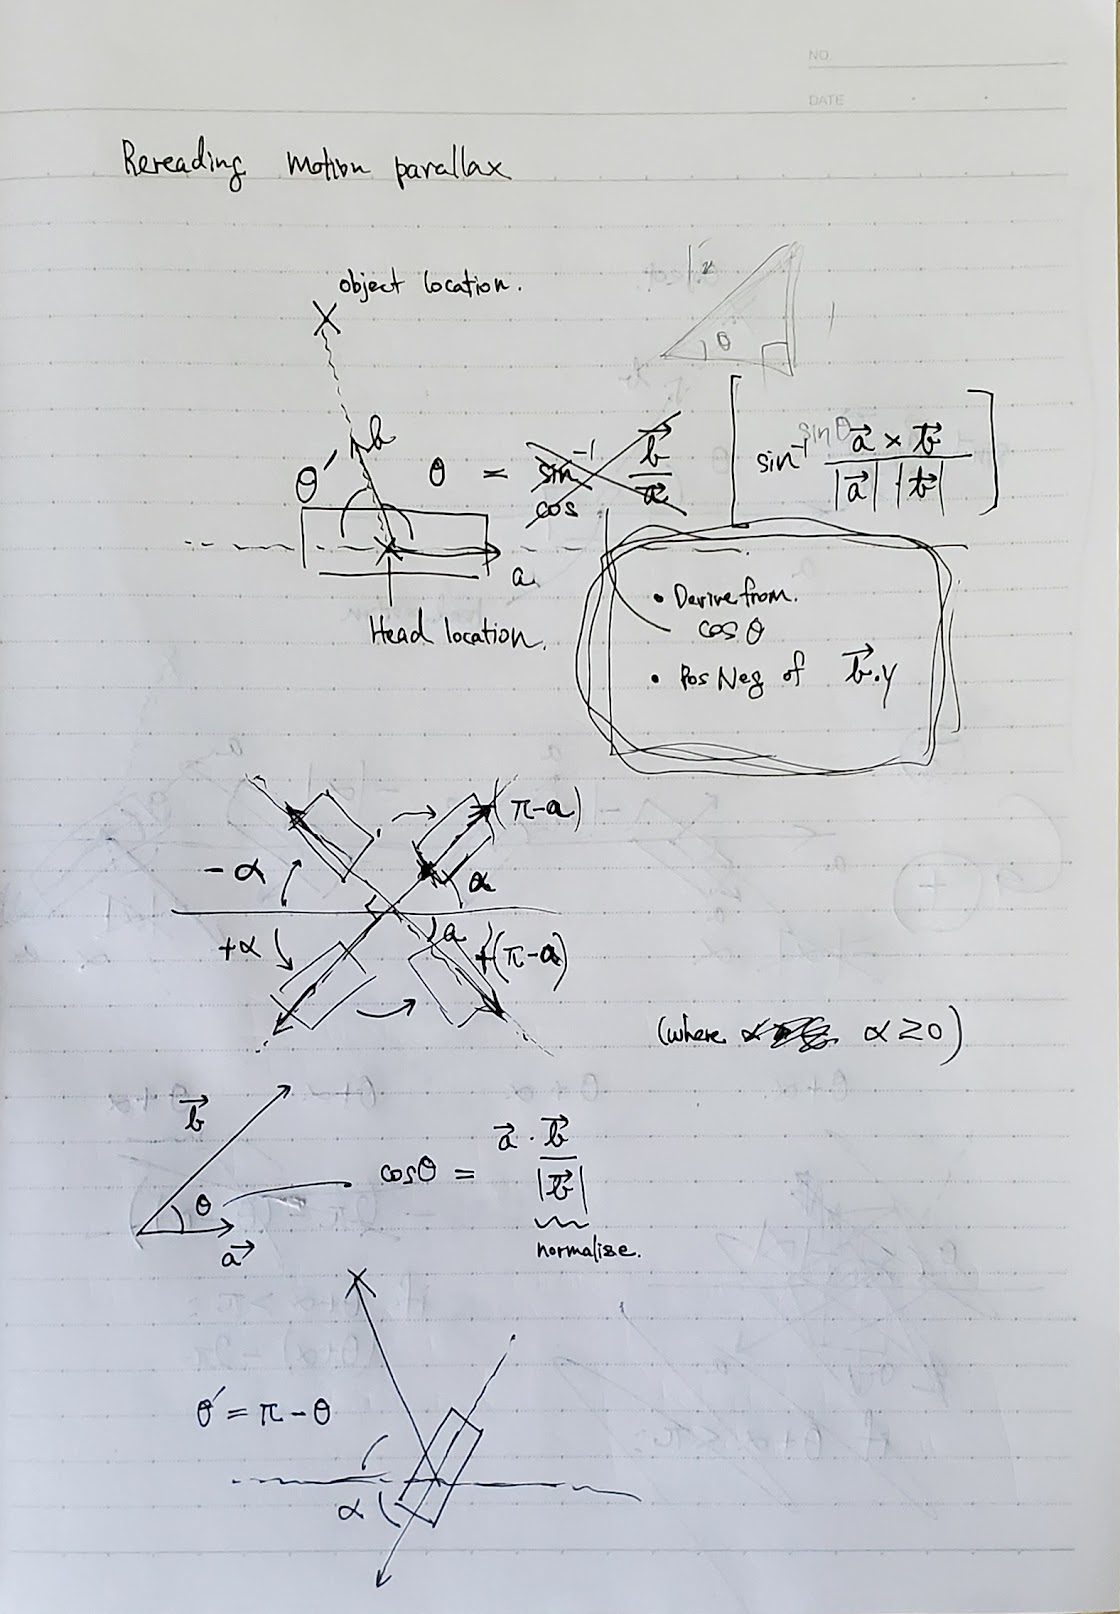 NO.
DATE
Rereading motion parallax
object location.
θ
1
b
θ′
θ = sin⁻¹ b⃗ / a⃗
cos
sinθ
sin⁻¹ a⃗ × b⃗ / |a⃗| |b⃗|
a
Head location.
• Derive from.
cos θ
• Pos Neg of b⃗.y
(π-a)
-α
α
+α
a
+(π-a)
(where α α ≥ 0)
b⃗
θ
a⃗
cosθ = a⃗ · b⃗ / |b⃗|
normalise.
θ′ = π - θ
α